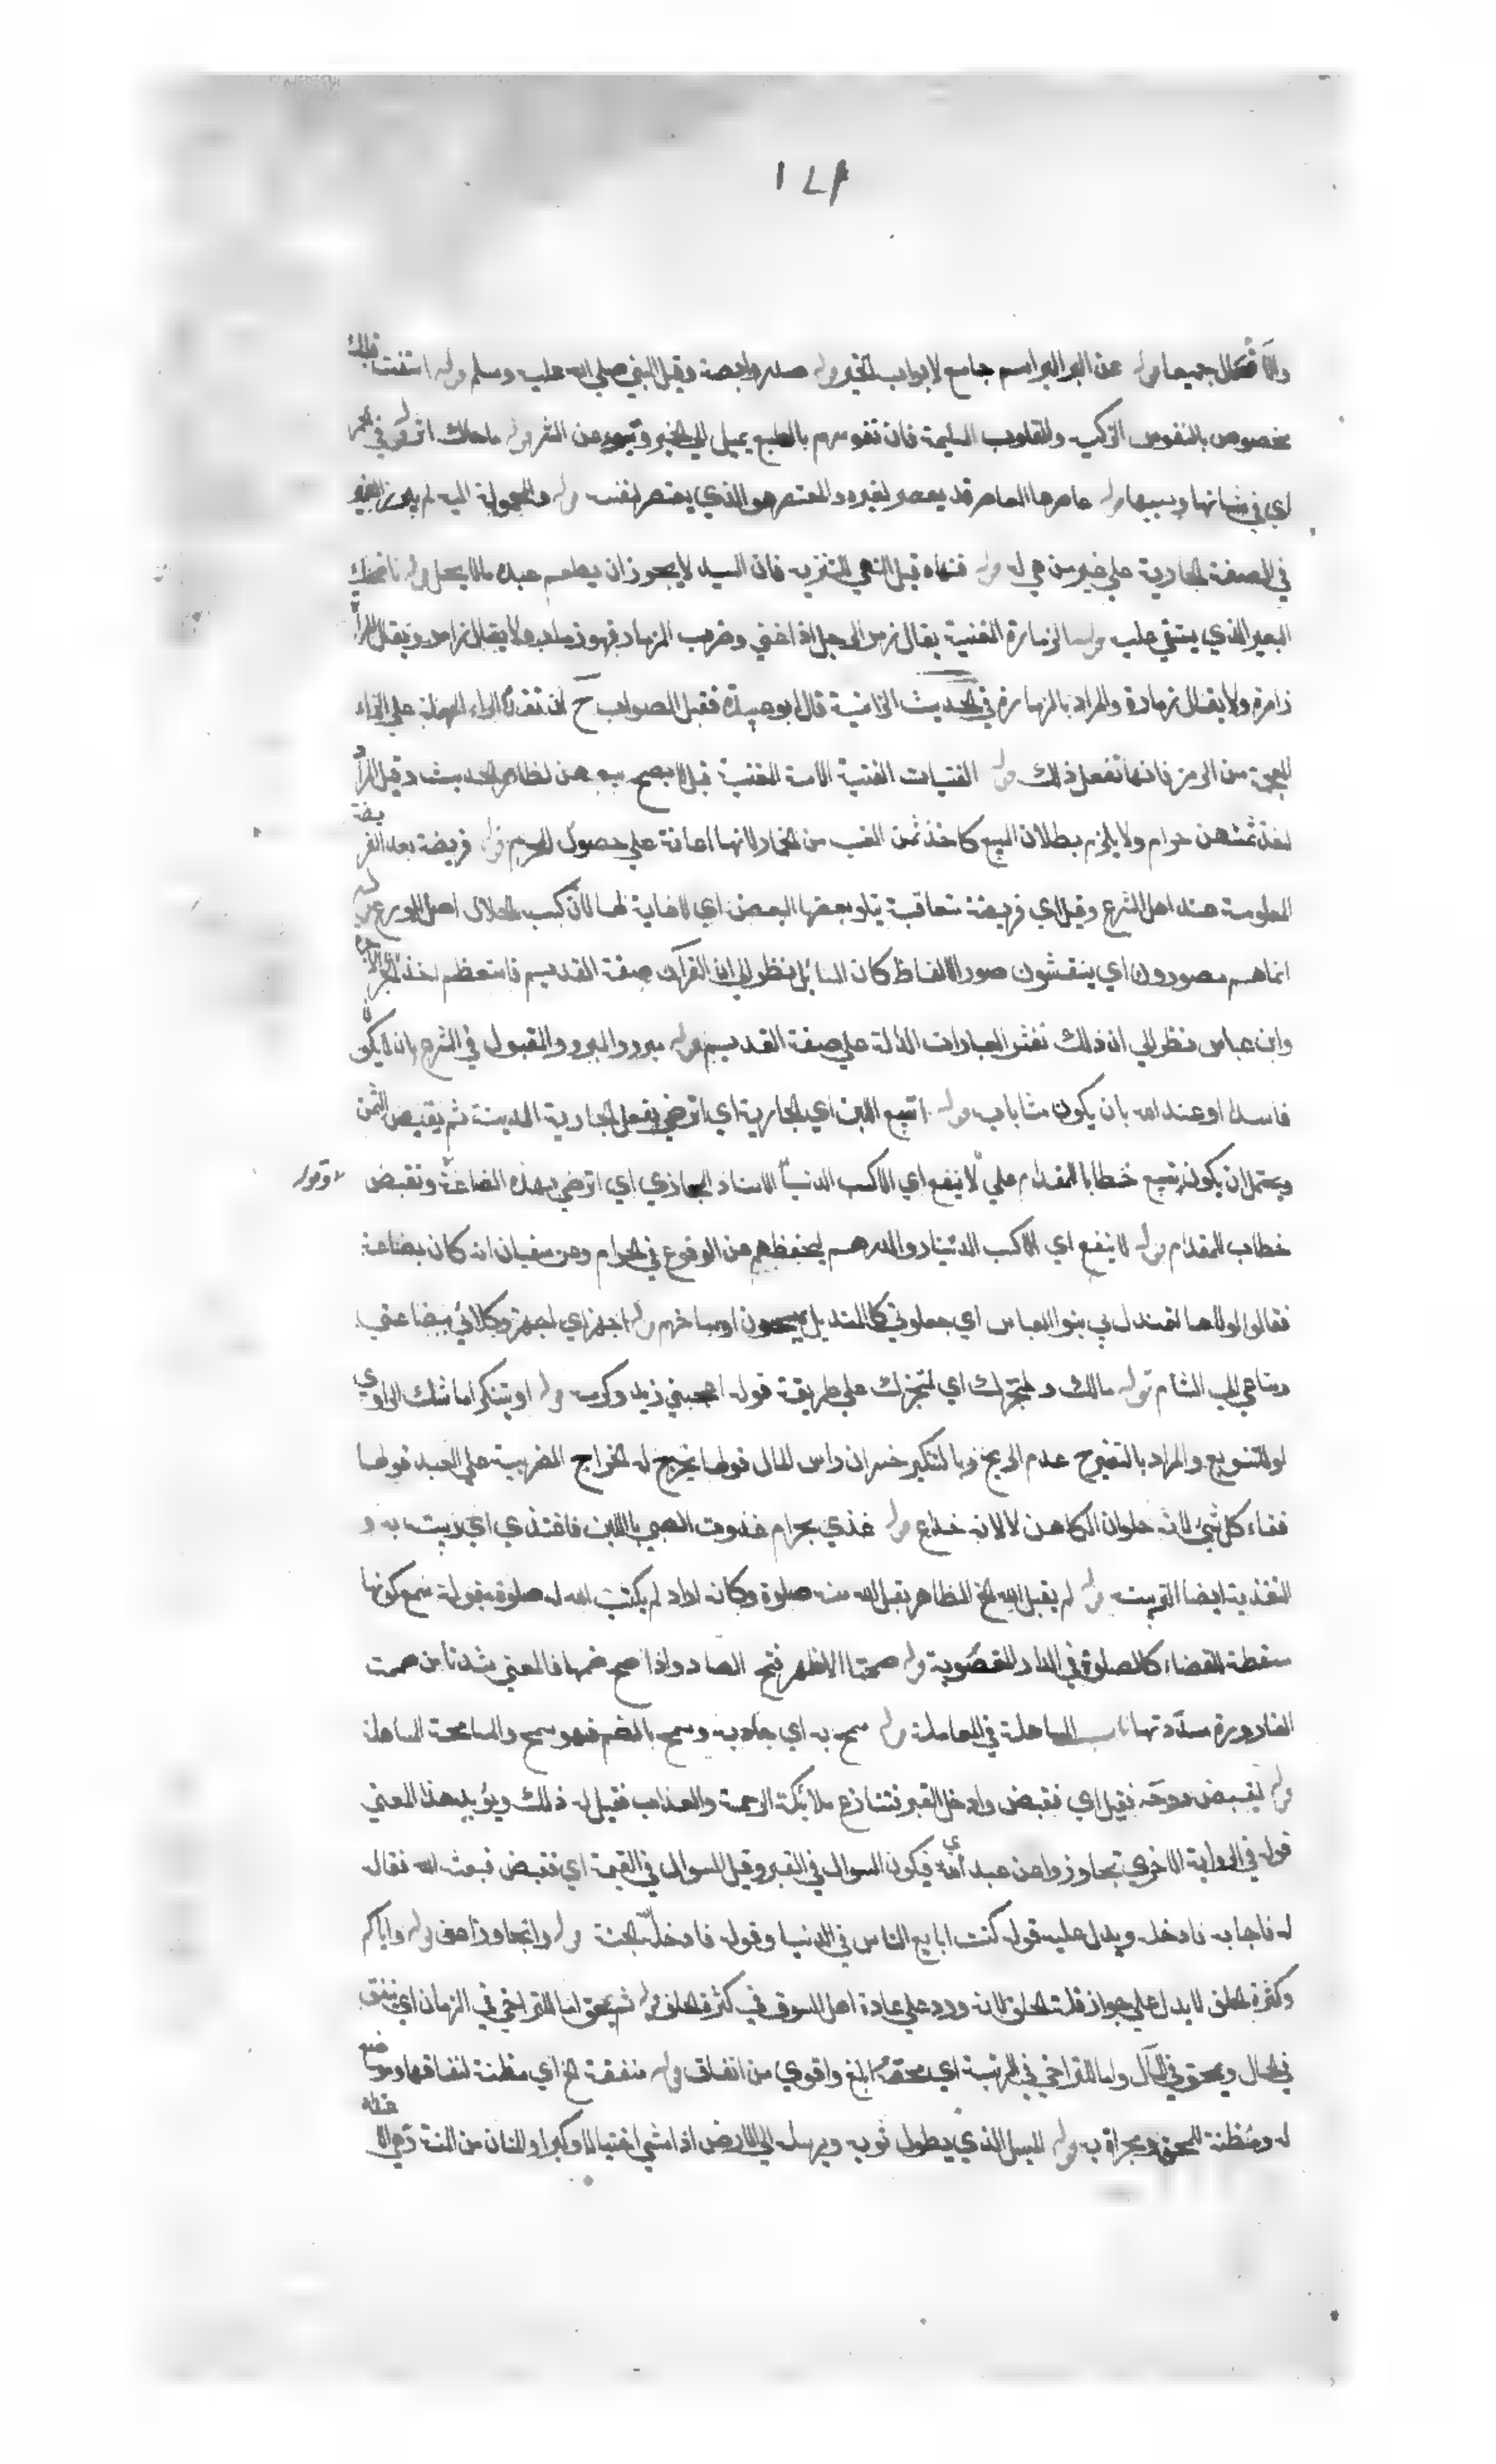 ١٤٢
والا فكل جميعا قوله عن البر البر اسم جامع لابواب الخير قوله صدره وابصة وقيل النبي صلي الله عليه وسلم قوله استفت قلبك
مخصوص بالنفوس الزكية والقلوب السليمة فان نفوسهم بالطبع يميل الي الخير وتبعد عن الشر قوله ما معك اترى في الخمر
اي في شانها وبسببها قوله عاصرها العاصر قد يعصر لغيره والمعتصر هو الذي يعتصر لنفسه قوله والمحمولة اليه لم يبرز الضمير
في الصفة الجارية علي غير من هي له قوله فنهاه قيل النهي للتنزيه فان السيد لا يجوز ان يطعم عبده مالا يحل قوله ناضحك
البعير الذي يستقي عليه قوله الزمارة المغنية يقال زمر الرجل اذا غني وضرب المزمار فهو زمار ولا يقال زامر ويقال للمرأة
زامرة ولا يقال زمارة والمراد بالزمارة في الحديث الزانية قال ابو عبيدة فقيل الصواب ح ان تقدم الراء المهملة علي الزاء
المعجمة من الرمز فانها تفعل ذلك قوله القينات القينة الامة المغنية قيل لا يصح بيعهن لظاهر الحديث وقيل المراد
اخذ ثمنهن حرام ولا يلزم بطلان البيع كاخذ ثمن العنب من الخمار لانها اعانة علي حصول المحرم قوله فريضة بعد الفريضة
المعلومة عند اهل الشرع وقيل اي فريضة متعاقبة يتلو بعضها البعض اي لا غاية لها لان كسب الحلال اصل الورع قوله
انما هم مصورون اي ينقشون صور الالفاظ كان السائل نظر الي ان القرآن صفة القديم فاستعظم اخذ الاجرة
وابن عباس نظر الي ان ذلك نقش العبارات الدالة علي صفة القديم قوله مبرور المبرور المقبول في الشرع بان لا يكون
فاسدا او عند الله بان يكون مثابا به قوله اتبيع اللبن اي الجارية اي اترضي بفعل الجارية المدينة ثم يقبض الثمن
ويحتمل ان يكون تبيع خطابا للمقدام علي الاسناد المجازي اي اترضي بهذه الضاعة وتقبض وقوله
خطاب المقدام قوله لا ينفع اي الا كسب الدينار والدرهم ليحفظهم عن الوقوع في الحرام وعن سفيان انه كان بضاعة
فقالوا لولاها لتمندل بي بنو العباس اي جعلوني كالمنديل يمسحون اوساخهم قوله اجهز اي اجهز وكلائي ببضاعتي
ومتاعي الي الشام قوله مالك ولمتجرك اي لمتجرك علي طريقة قوله اعجبني زيد وكرمه قوله او يتنكر اما شك الراوي
او للتنويع والمراد بالتغير عدم الربح وبالتنكير خسران راس المال قولها يخرج له الخراج الضريبة علي العبد قولها
فقاء كل شئ لانه حلوان الكاهن لا لانه خداع قوله غذي بحرام غذوت الصبي باللبن فاغتذي اي ربيته به و
التغذية ايضا التربية قوله لم يقبل الله الخ الظاهر يقبل الله منه صلوة وكانه اراد لم يكتب الله له صلوة مقبولة مع كونها
مسقطة للقضاء كالصلوة في الدار المغصوبة قوله صمتا الاظهر فتح الصاد واذا صح ضمها فالمعني سدتا من صممت
القارورة سددتها باب المساهلة في المعاملة قوله سمح به اي جاد به وسمح بالضم فهو سمح والمسامحة المساهلة
قوله ليقبض روحه فقيل اي فقبض وادخل القبر فتنازع ملائكة الرحمة والعذاب فقيل له ذلك ويؤيد هذا المعني
قوله في الرواية الاخري تجاوزوا عن عبدي فيكون السوال في القبر وقيل السوال في القيمة اي فقبض فبعث الله فقال
له فاجابه فادخل ويدل عليه قوله كنت ابايع الناس في الدنيا وقوله فادخله الله الجنة قوله واتجاوز اعف قوله واياكم
وكثرة الحلف لا يدل علي جواز قلت الحلف لانه ورد علي عادة اهل السوق في كثرة الحلف قوله ثم يمحق اما للتراخي في الزمان اي ينفق
في الحال ويمحق في المآل واما للتراخي في المرتبة اي محقه ابلغ واقوي من انفاقه قوله منفقة الخ اي مظنة لنفاقها وموضع
له ومظنة للمحق ومجراة به قوله المسبل الذي يطول ثوبه ويرسله الي الارض اذا مشي اختيالا وكبرا والمنان من المنة وهي الا